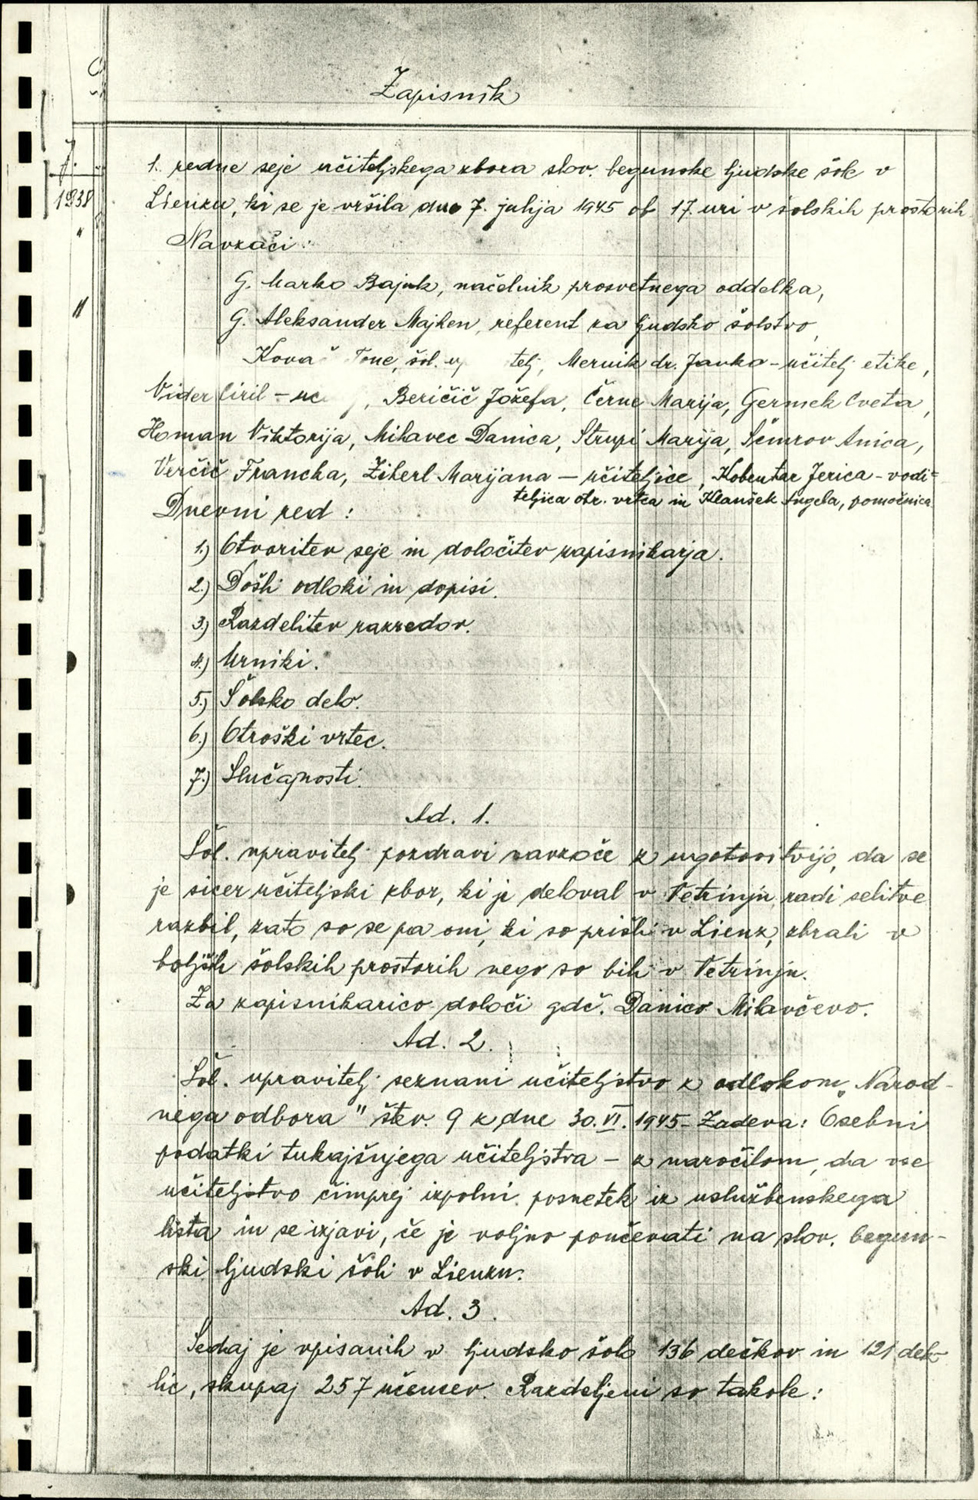 Zapisnik
7.
1938
"
"
1. redne seje učiteljskega zbora slov. begunske ljudske šole v
Lienzu, ki se je vršila dne 7. julija 1945 ob 17. uri v šolskih prostorih
Navzači:
G. Marko Bajuk, načelnik prosvetnega oddelka,
G. Aleksander Majhen, referent za ljudsko šolstvo,
Kovač Tone, šol. telj, Mernik dr. Janko - učitelj etike,
Vider Ciril - , Beričič Jožefa, Černe Marija, Germek Cveta,
Homan Viktorija, Milavec Danica, Strupi Marija, Šemrov Anica,
Verčič Francka, Ziherl Marijana - učiteljice, Kobentar Jerica - vodi=
teljica otr. vrtca in Klanšek Angela, pomočnica
Dnevni red:
1.) Otvoritev seje in določitev zapisnikarja.
2.) Došli odloki in dopisi.
3.) Razdelitev razredov.
4.) Urniki.
5.) Šolsko delo.
6.) Otroški vrtec.
7.) Slučajnosti.
Ad. 1.
Šol. upravitelj pozdravi navzoče z ugotovitvijo, da se
je sicer učiteljski zbor, ki je deloval v Vetrinju radi selitve
razbil, zato so se pa oni, ki so prišli v Lienz, zbrali v
boljših šolskih prostorih nego so bili v Vetrinju.
Za zapisnikarico določi gdč. Danico Milavčevo.
Ad. 2.
Šol. upravitelj seznani učiteljstvo z odlokom „Narod-
nega odbora" štev. 9 z dne 30. VI. 1945 - Zadeva: Osebni
podatki tukajšnjega učiteljstva - z naročilom, da vse
učiteljstvo čimprej izpolni posnetek iz uslužbenskega
lista in se izjavi, če je voljno poučevati na slov. begun-
ski ljudski šoli v Lienzu.
Ad. 3.
Sedaj je vpisanih v ljudsko šolo 136 dečkov in 121 dek-
lic, skupaj 257 učencev. Razdeljeni so takole: